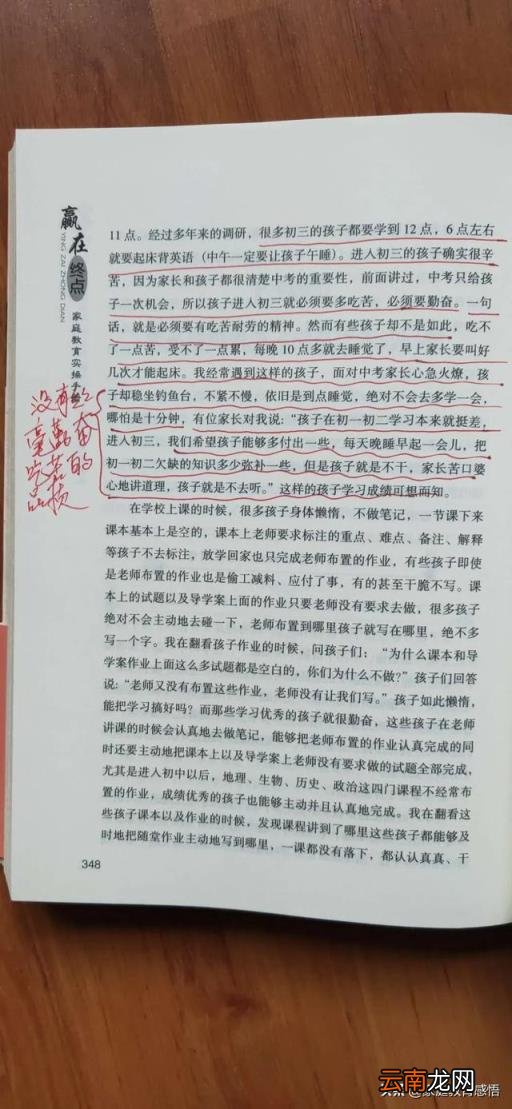 赢在终点
YING ZAI ZHONG DIAN
家庭教育实操手
11点。经过多年来的调研，很多初三的孩子都要学到12点，6点左右
就要起床背英语（中午一定要让孩子午睡）。进入初三的孩子确实很辛
苦，因为家长和孩子都很清楚中考的重要性，前面讲过，中考只给孩
子一次机会，所以孩子进入初三就必须要多吃苦，必须要勤奋。一句
话，就是必须要有吃苦耐劳的精神。然而有些孩子却不是如此，吃不
了一点苦，受不了一点累，每晚10点多就去睡觉了，早上家长要叫好
几次才能起床。我经常遇到这样的孩子，面对中考家长心急火燎，孩
子却稳坐钓鱼台，不紧不慢，依旧是到点睡觉，绝对不会去多学一会，
哪怕是十分钟，有位家长对我说：“孩子在初一初二学习本来就挺差，
进入初三，我们希望孩子能够多付出一些，每天晚睡早起一会儿，把
初一初二欠缺的知识多少弥补一些，但是孩子就是不干，家长苦口婆
心地讲道理，孩子就是不去听。”这样的孩子学习成绩可想而知。
没有
毫勤奋
吃苦的
品质
在学校上课的时候，很多孩子身体懒惰，不做笔记，一节课下来
课本基本上是空的，课本上老师要求标注的重点、难点、备注、解释
等孩子不去标注，放学回家也只完成老师布置的作业，有些孩子即使
是老师布置的作业也是偷工减料、应付了事，有的甚至干脆不写。课
本上的试题以及导学案上面的作业只要老师没有要求去做，很多孩子
绝对不会主动地去碰一下，老师布置到哪里孩子就写在哪里，绝不多
写一个字。我在翻看孩子作业的时候，问孩子们：“为什么课本和导
学案作业上面这么多试题都是空白的，你们为什么不做？”孩子们回答
说：“老师又没有布置这些作业，老师没有让我们写。”孩子如此懒惰，
能把学习搞好吗？而那些学习优秀的孩子就很勤奋，这些孩子在老师
讲课的时候会认真地去做笔记，能够把老师布置的作业认真完成的同
时还要主动地把课本上以及导学案上老师没有要求做的试题全部完成，
尤其是进入初中以后，地理、生物、历史、政治这四门课程不经常布
置的作业，成绩优秀的孩子也能够主动并且认真地完成。我在翻看这
些孩子课本以及作业的时候，发现课程讲到了哪里这些孩子都能够及
时地把随堂作业主动地写到哪里，一课都没有落下，都认认真真、干
348
云南龙网
@家庭教育感悟